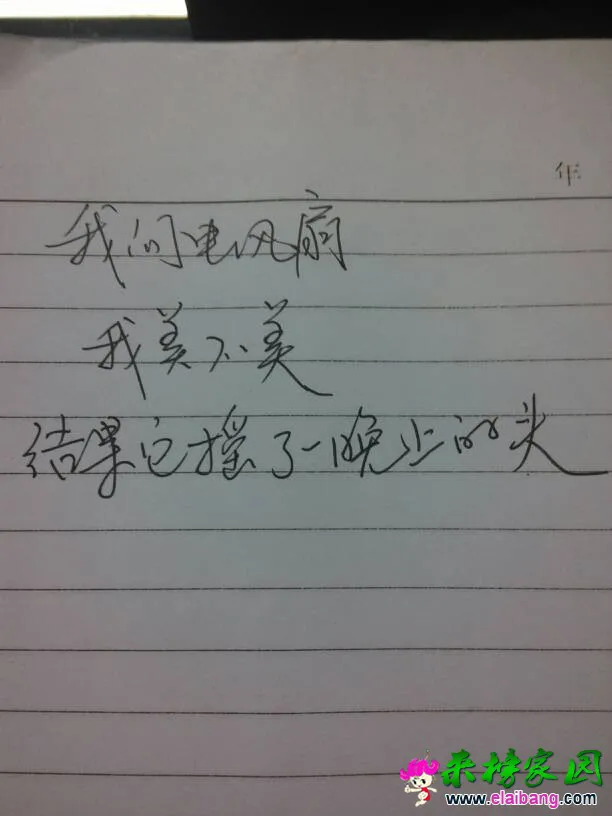 我问电风扇
我美不美
结果它摇了一晚上的头
来榜家园
www.elaibang.com